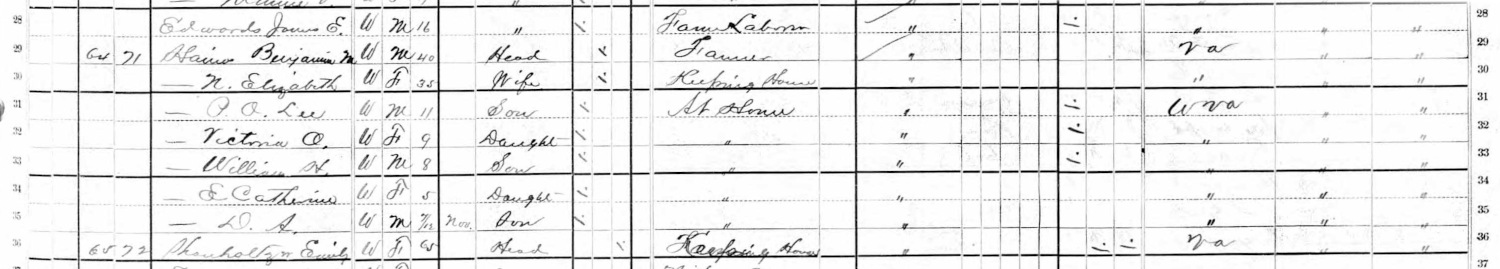 28 Edwards James E. W M 16 " 1. Farm Laborer " 1. " " " 28
29 64 71 Haines Benjamin M W M 40 Head 1. Farmer " Va " " 29
30 — N. Elizabeth W F 35 Wife 1. Keeping House " " " " 30
31 — P. O. Lee W M 11 Son 1. At Home " 1. 1. W Va " " 31
32 — Victoria O. W F 9 Daught 1. " " 1. 1. " " " 32
33 — William H. W M 8 Son 1. " " 1. " " 33
34 — E Catherine W F 5 Daught 1. " " " " " 34
35 — D. A. W M 7/12 Nov. Son 1. " " " " " 35
36 65 72 Shanholtzer Emily W F 65 Head 1. Keeping House " 1. 1. Va " " 36
37